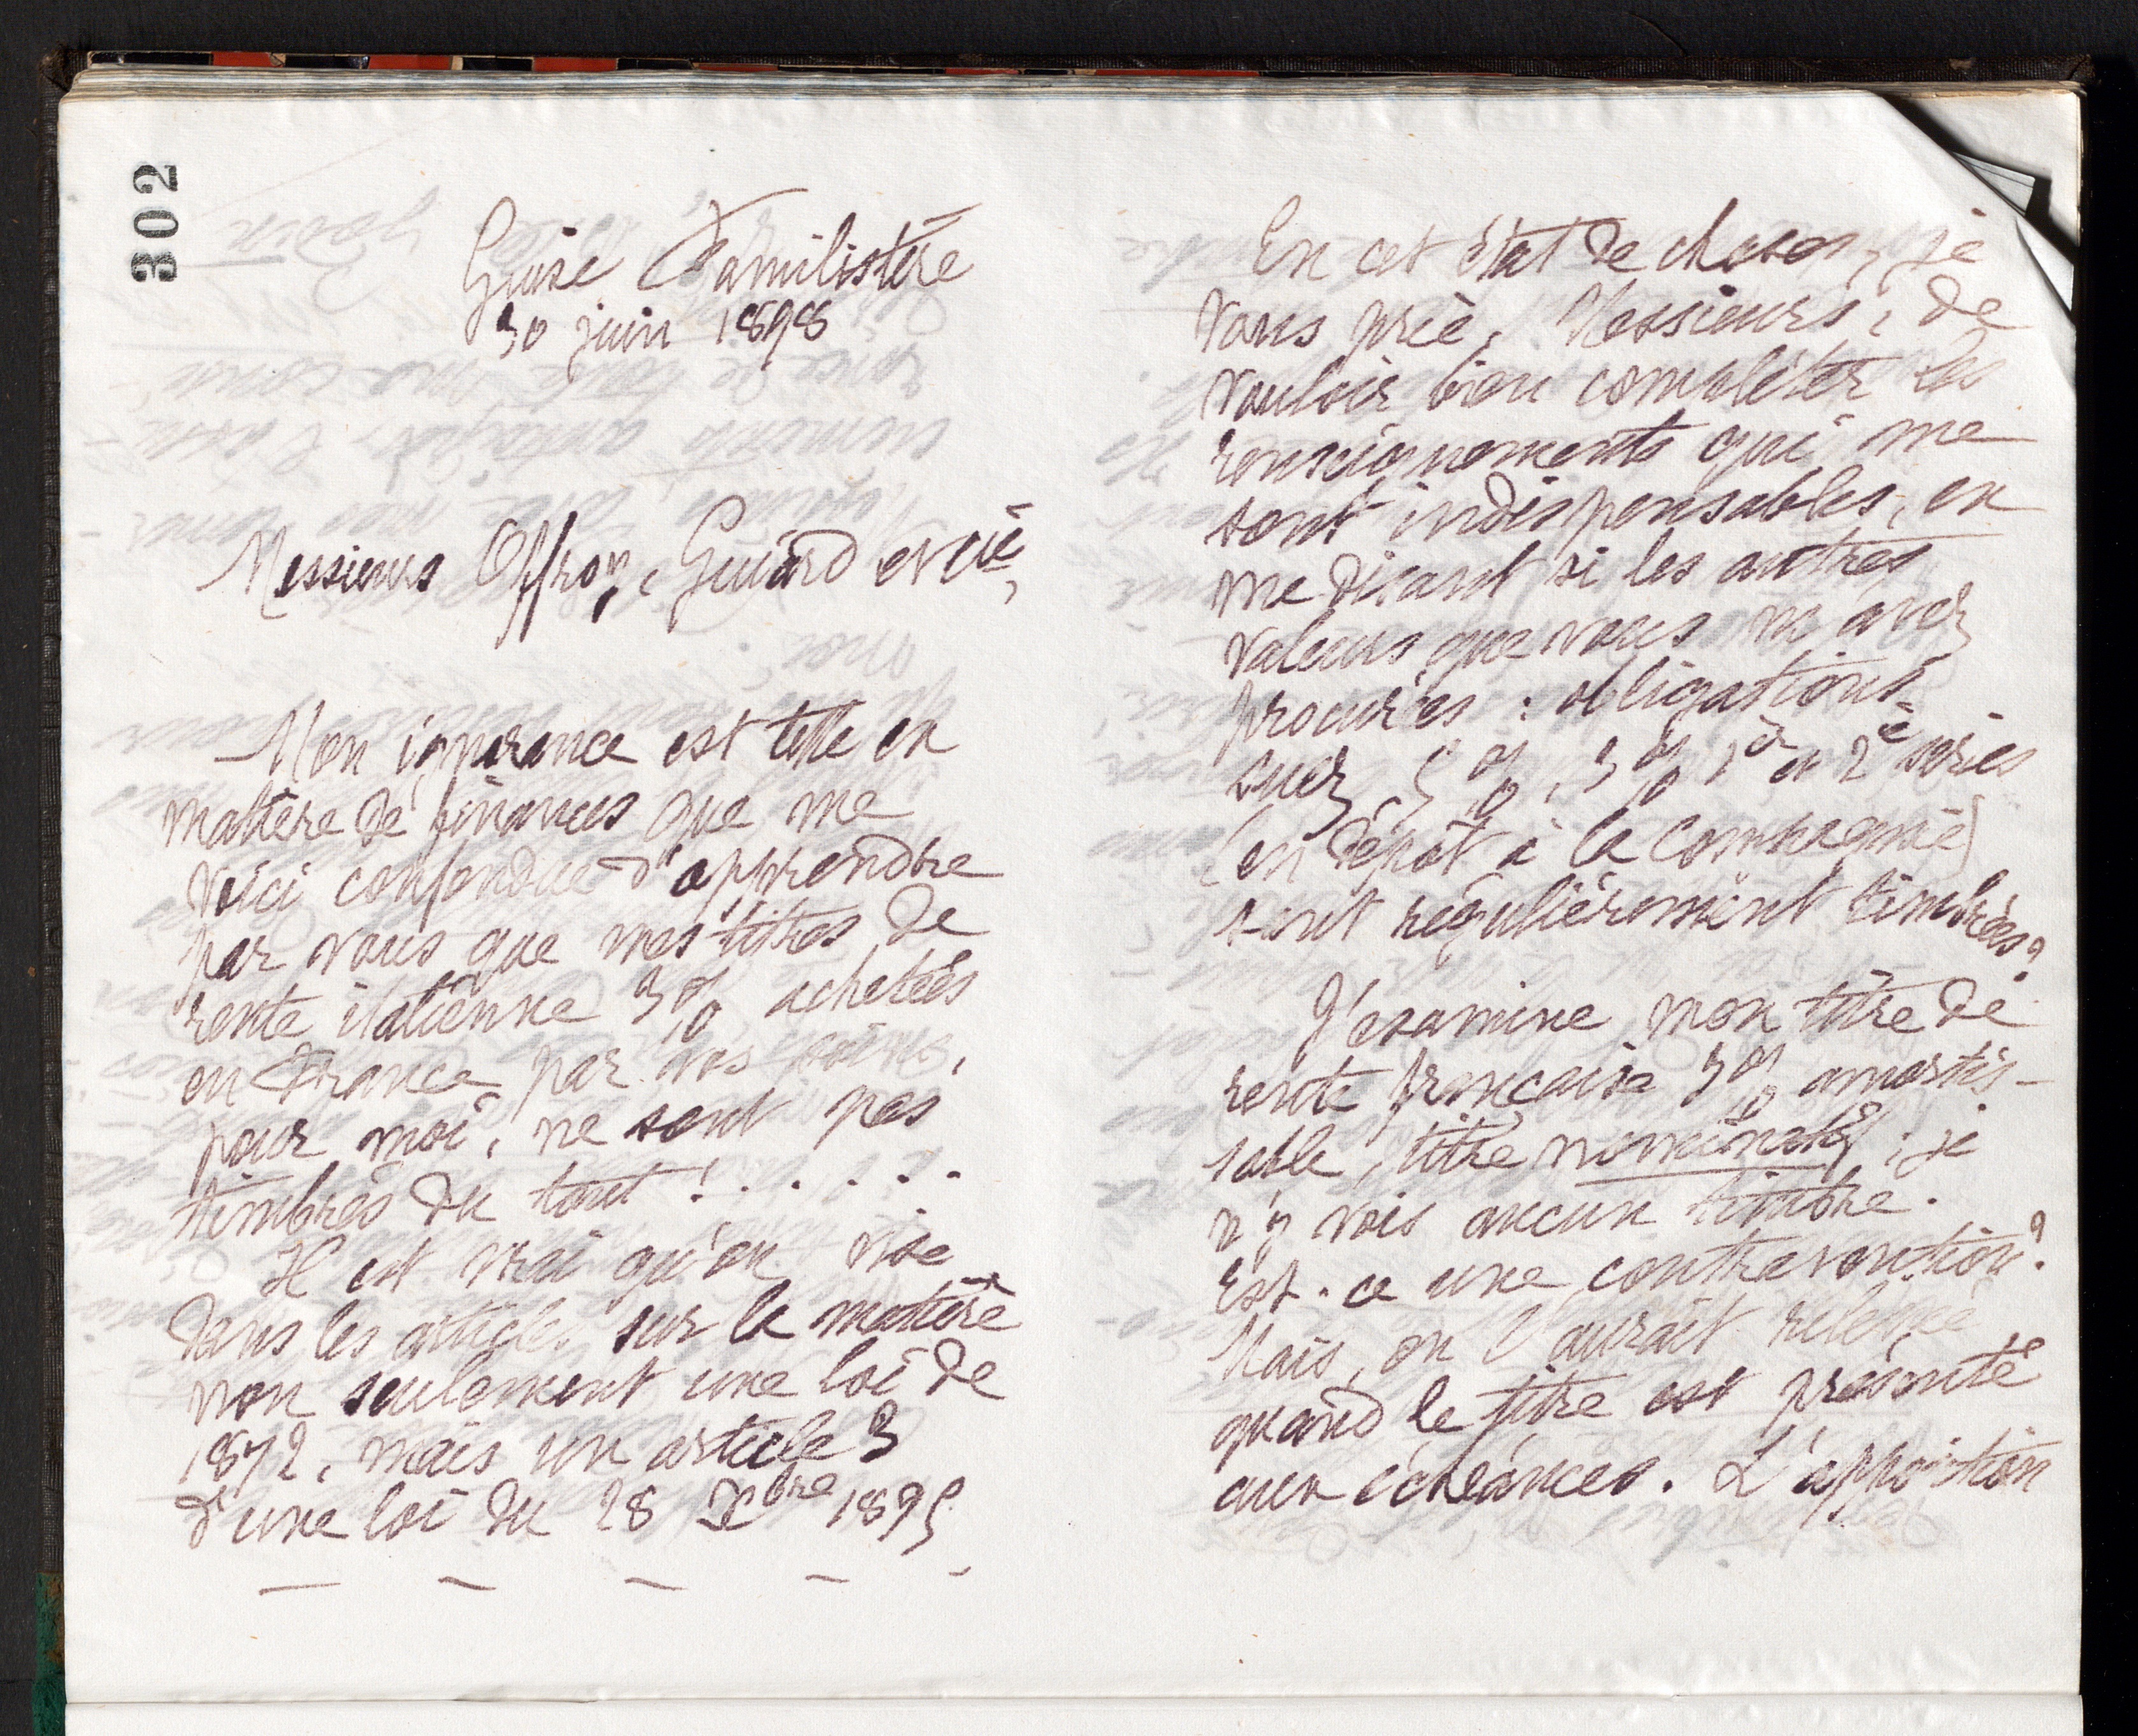 302
Guise Familistère
30 juin 1898
Messieurs Offroy, Guiard et Cie,
Mon ignorance est telle en
matière de finances que me
voici confondue d'apprendre
par vous que mes titres de
rente italienne 3% achetés
en France par vos soins,
pour moi, ne sont pas
timbrés du tout ! . . . . .
Il est vrai qu'on vise
dans les articles sur la matière
non seulement une loi de
1872, mais un article 3
d'une loi du 28 Xbre 1895
— — — — -
En cet état de choses, je
vous prie, Messieurs, de
vouloir bien compléter les
renseignements qui me
sont indispensables, en
me disant si les autres
valeurs que vous m'avez
procurées : obligations
Suez 5%, 3% 1è et 2e séries
(en dépôt à la Compagnie)
sont régulièrement timbrées?
J'examine mon titre de
rente française 3% amortis-
sable, titre nominatif ; je
n'y vois aucun timbre.
Est-ce une contravention?
Mais, on l'aurait relevée
quand le titre est présenté
aux échéances. L'apposition